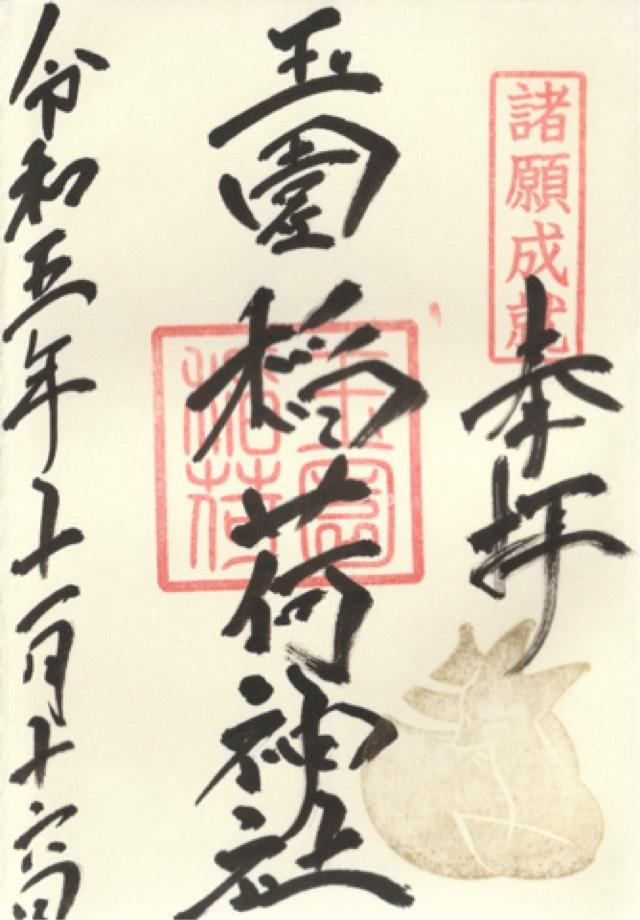 諸願成就
奉拝
玉園稲荷神社
玉園
稲荷
令和五年十一月十六日